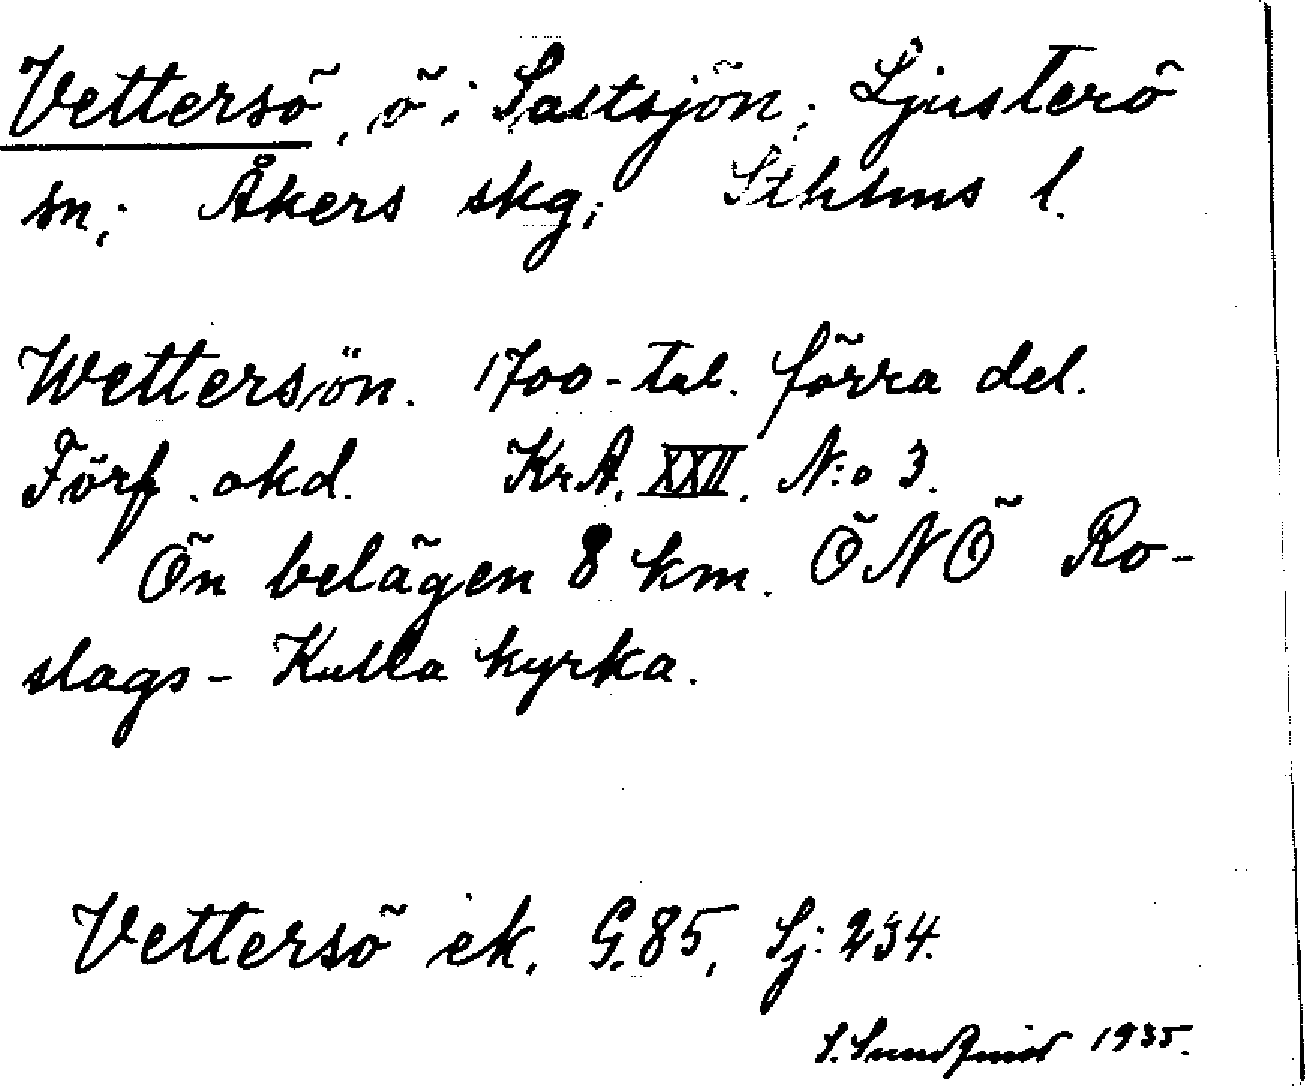 Vettersö, ö i Saltsjön; Ljusterö
sn; Åkers skg; Sthlms l.
Wettersön. 1700-tal. förra del.
Förf. okd. Kr.A. XXII. N:o 3.
Ön belägen 8 km. ÖNÖ Ro-
slags-Kulla kyrka.
Vettersö ek. G.85, Sj: 234.
S. Sundqvist 1935.